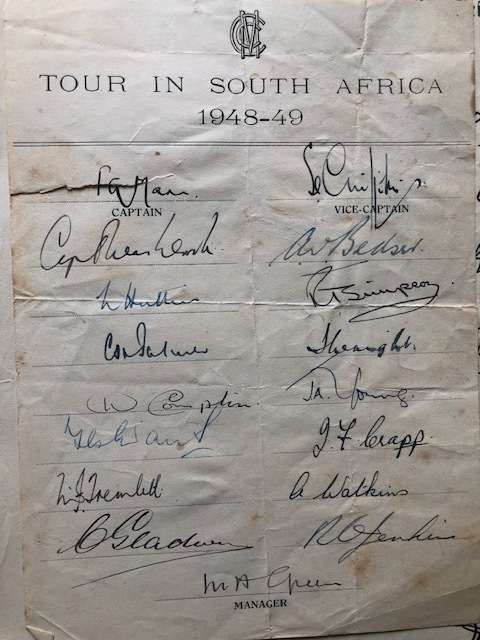 MCC
TOUR IN SOUTH AFRICA
1948-49
F G Mann S. C. Griffith
CAPTAIN VICE-CAPTAIN
A V Bedser
L Hutton R T Simpson
C H Palmer
D Wright
D Compton J A Young
Leslie Ames J. F. Crapp
M F Tremlett A Watkins
C Gladwin R O Jenkins
M A Green
MANAGER